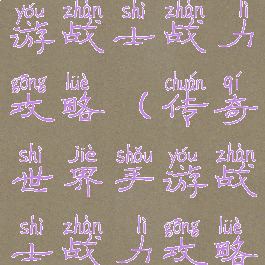 yóu zhàn shì zhàn lì
游战士战力
gōng lüè chuán qí
攻略(传奇
shì jiè shǒu yóu zhàn
世界手游战
shì zhàn lì gōng lüè
士战力攻略